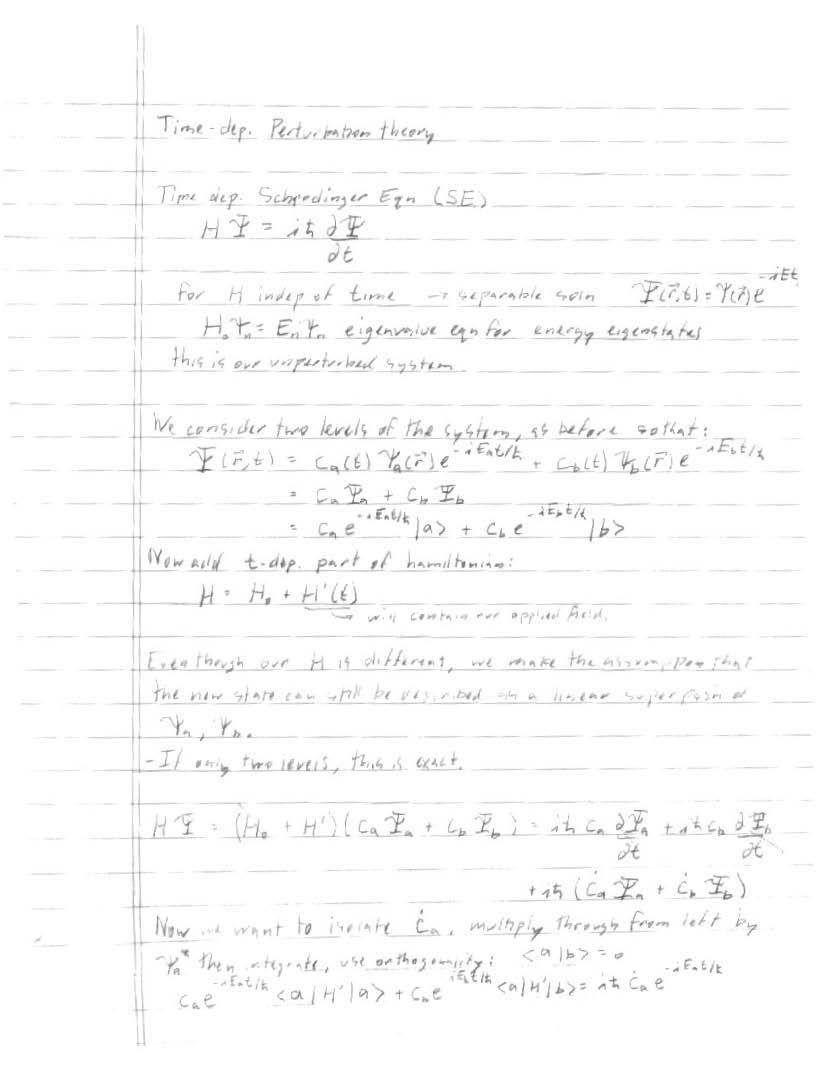 Time-dep. Perturbation theory
Time dep. Schrodinger Eqn (SE)
HΨ = iħ ∂Ψ/∂t
for H indep of time → separable soln Ψ(r⃗,t) = ψ(r⃗)e^-iEt
H₀Ψₙ = EₙΨₙ eigenvalue eqn for energy eigenstates
this is our unperturbed system
We consider two levels of the system, as before so that:
Ψ(r⃗,t) = Cₐ(t) Ψₐ(r⃗)e^-iEₐt/ħ + C_b(t) Ψ_b(r⃗)e^-iE_bt/ħ
= CₐΨₐ + C_bΨ_b
= Cₐe^-iEₐt/ħ |a> + C_be^-iE_bt/ħ |b>
Now add t-dep. part of hamiltonian:
H = H₀ + H'(t)
→ will contain our applied field.
Even though our H is different, we make the assumption that
the new state can still be described as a linear of
Ψₐ, Ψ_b.
- If only two levels, this is exact.
HΨ = (H₀ + H')(CₐΨₐ + C_bΨ_b) = iħ Cₐ ∂Ψₐ/∂t + iħ C_b ∂Ψ_b/∂t
+ iħ (Ċₐ Ψₐ + Ċ_b Ψ_b)
Now we want to isolate Ċₐ, multiply through from left by
Ψₐ* then integrate, use orthogonality: <a|b> = 0
Cₐe^-iEₐt/ħ <a|H'|a> + C_be^iE_bt/ħ <a|H'|b> = iħ Ċₐe^-iEₐt/ħ